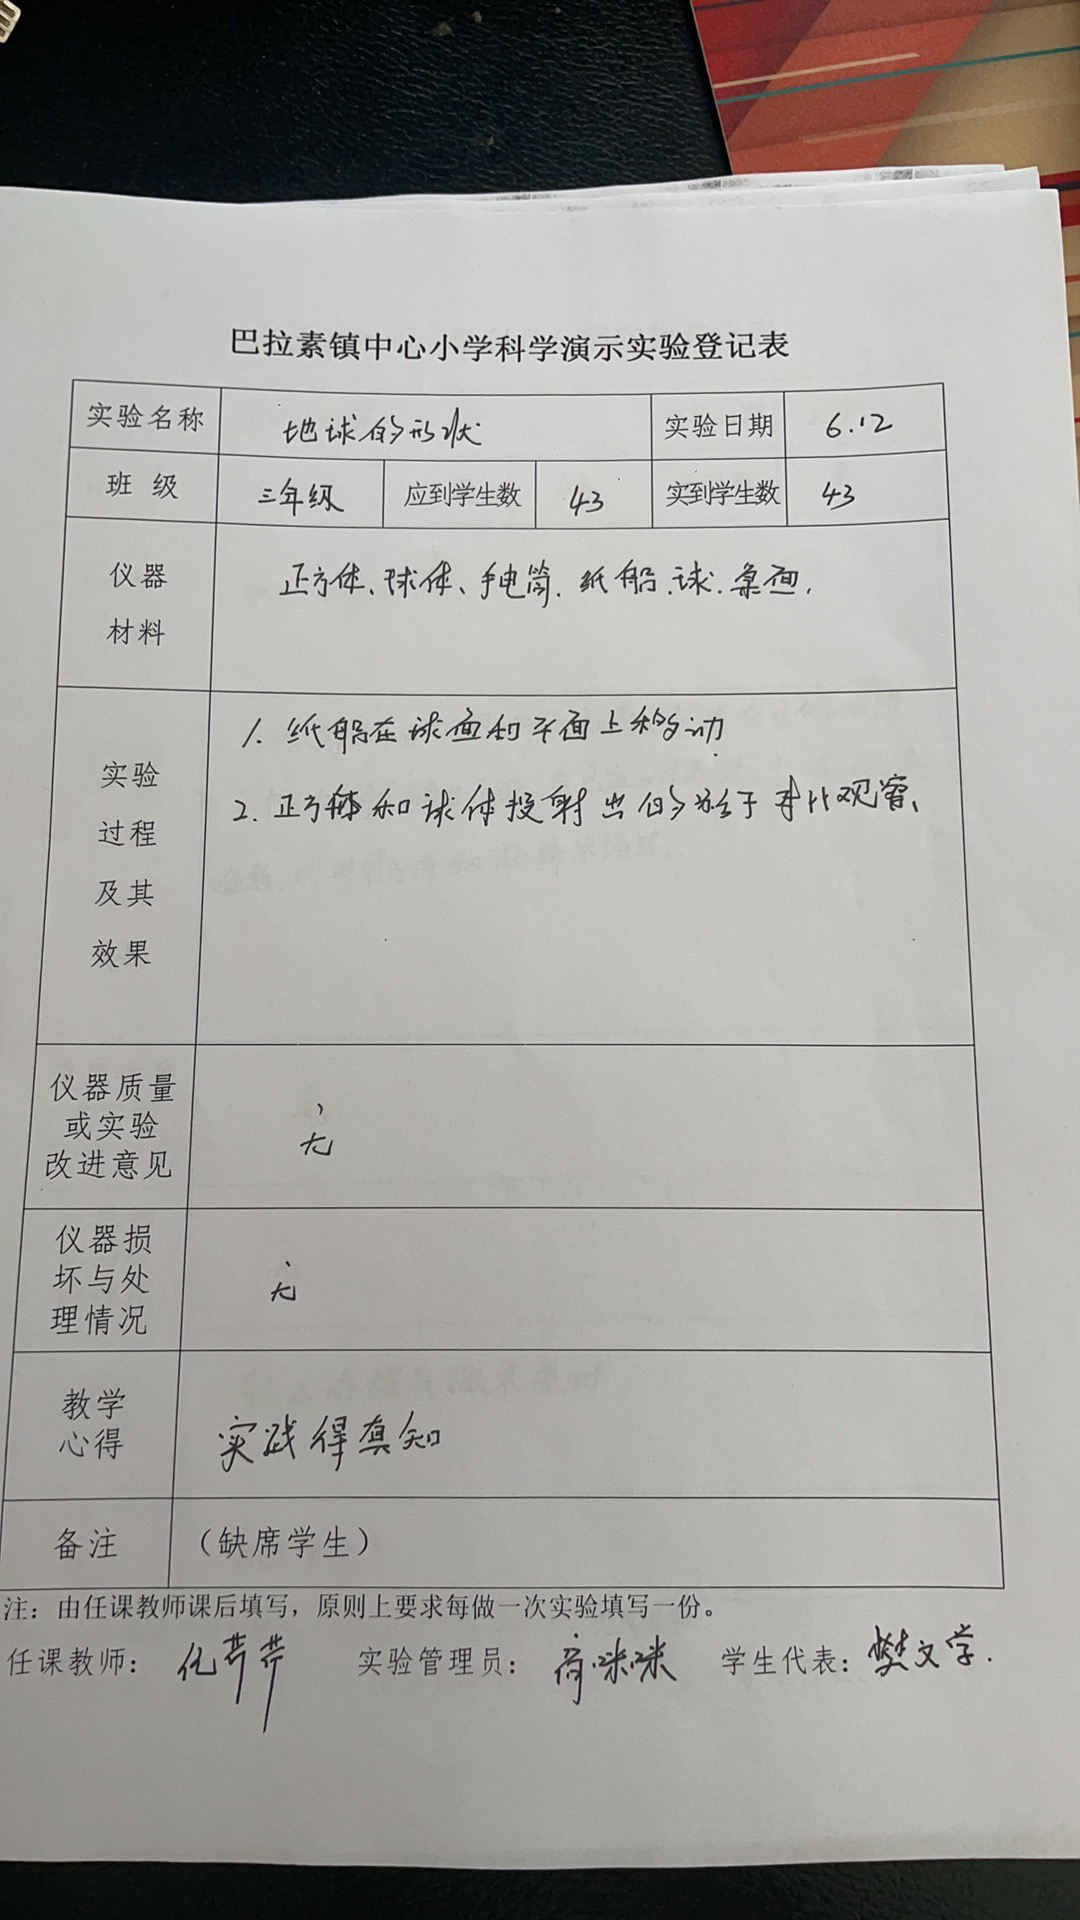 巴拉素镇中心小学科学演示实验登记表
实验名称 地球的形状 实验日期 6.12
班 级 三年级 应到学生数 43 实到学生数 43
仪器
材料
正方体、球体、手电筒、纸船、球、桌面.
实验
过程
及其
效果
1. 纸船在球面和平面上移动
2. 正方体和球体投射出的影子对比观察、
仪器质量
或实验
改进意见
无
仪器损
坏与处
理情况
无
教学
心得
实践得真知
备注 （缺席学生）
注：由任课教师课后填写，原则上要求每做一次实验填写一份。
任课教师： 芹芹 实验管理员： 咪咪 学生代表：樊文学.